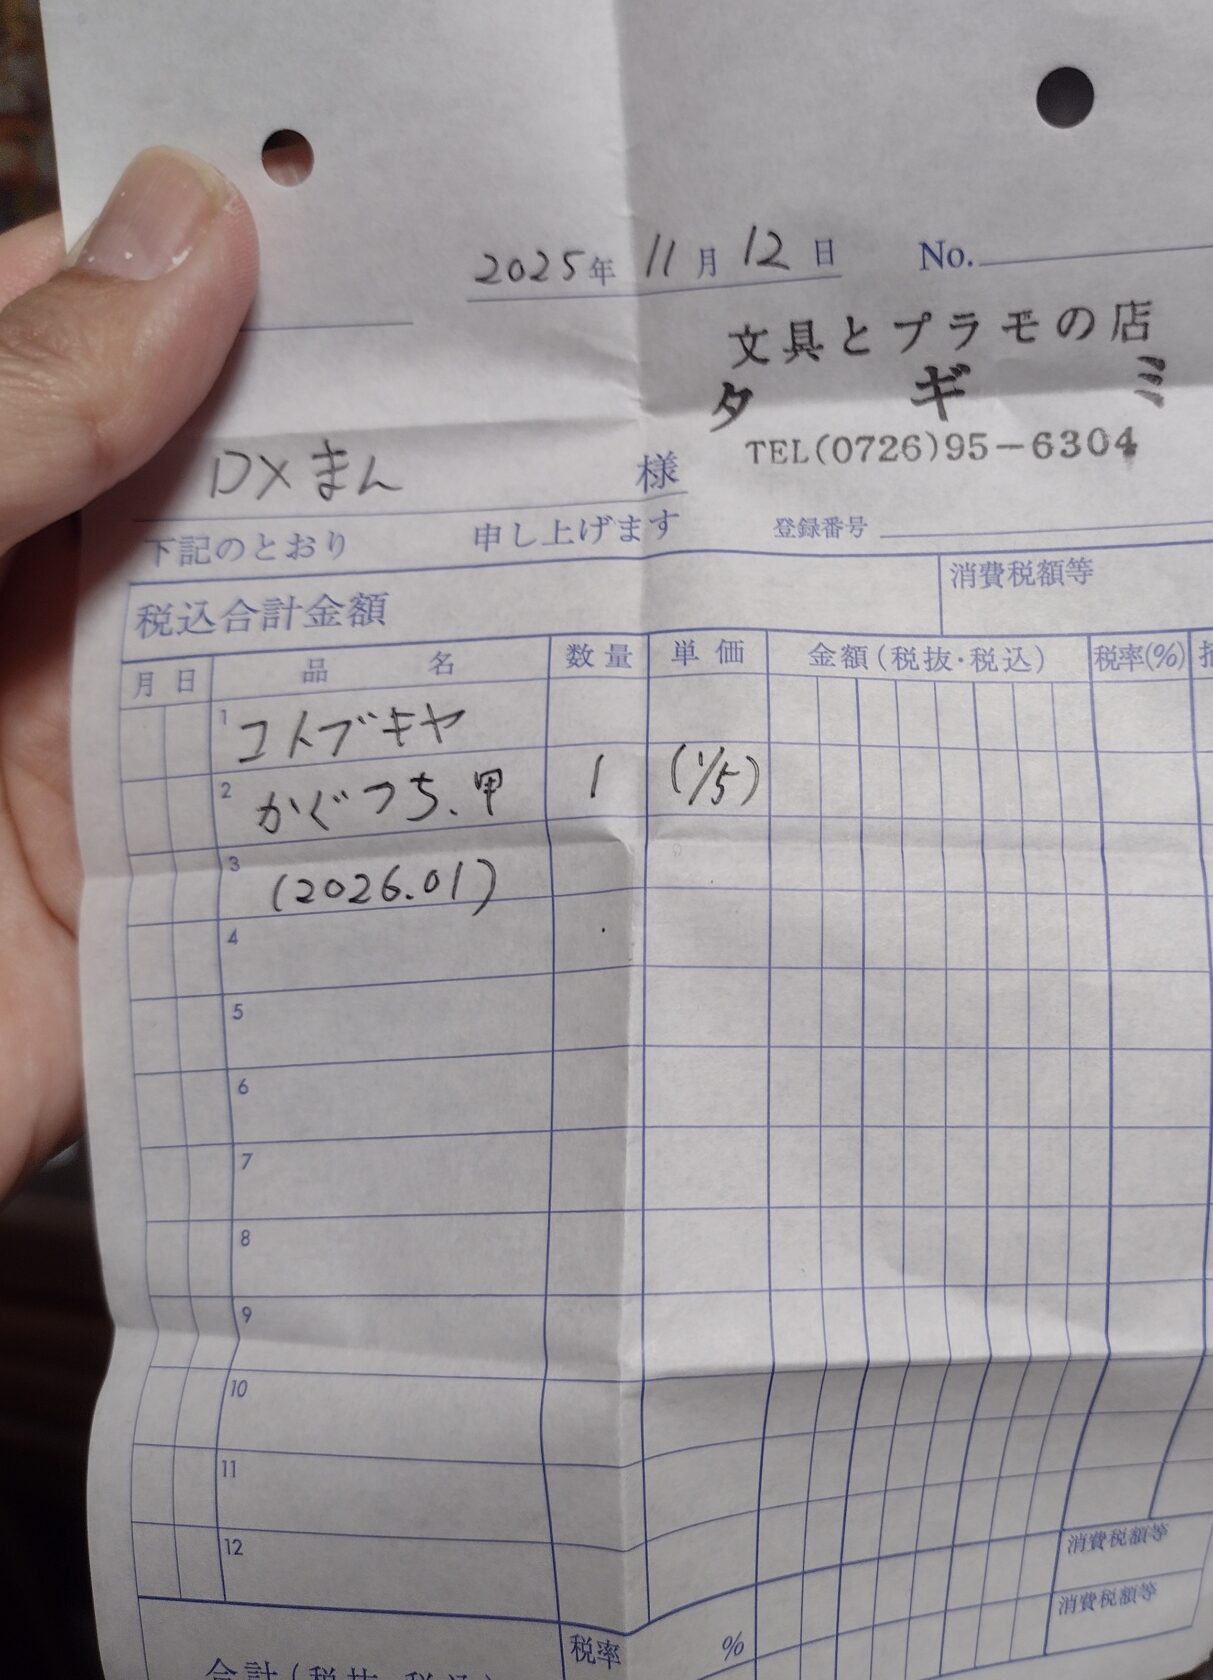 2025年 11月 12日 No.
文具とプラモの店
タギミ
TEL(0726)95-6304
DXまん 様
下記のとおり 申し上げます 登録番号
税込合計金額 消費税額等
月 日 品名 数量 単価 金額(税抜・税込) 税率(%)
1 コトブキヤ
2 かぐつち、甲 1 (1/5)
3 (2026.01)
4
5
6
7
8
9
10
11
12
消費税額等
税率 % 消費税額等
合計(税抜・税込)